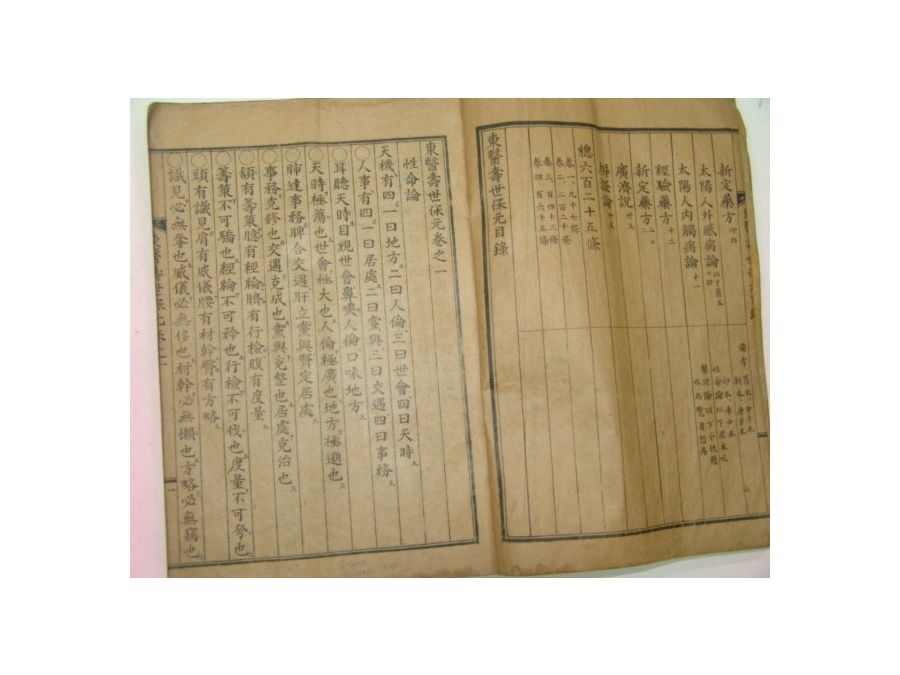 新定藥方 廿四
太陽人外感病論
太陽人內觸病論 十一
經驗藥方 十二
新定藥方 二
廣濟說 廿三
辨證論
總六百二十五條
卷一、九十七條
卷二、二百二十條
卷三、百四十三條
卷四、百六十五條
東醫壽世保元目錄
備考
東醫壽世保元卷之一
性命論
天機有四一曰地方二曰人倫三曰世會四曰天時
人事有四一曰居處二曰黨與三曰交遇四曰事務
耳聽天時目視世會鼻嗅人倫口味地方
天時極蕩也世會極大也人倫極廣也地方極邈也
肺達事務脾合交遇肝立黨與腎定居處
事務克修也交遇克成也黨與克整也居處克治也
頷有籌策臆有經綸臍有行檢腹有度量
籌策不可驕也經綸不可矜也行檢不可伐也度量不可夸也
頭有識見肩有威儀腰有材幹臀有方略
識見必無奪也威儀必無侈也材幹必無懶也方略必無竊也